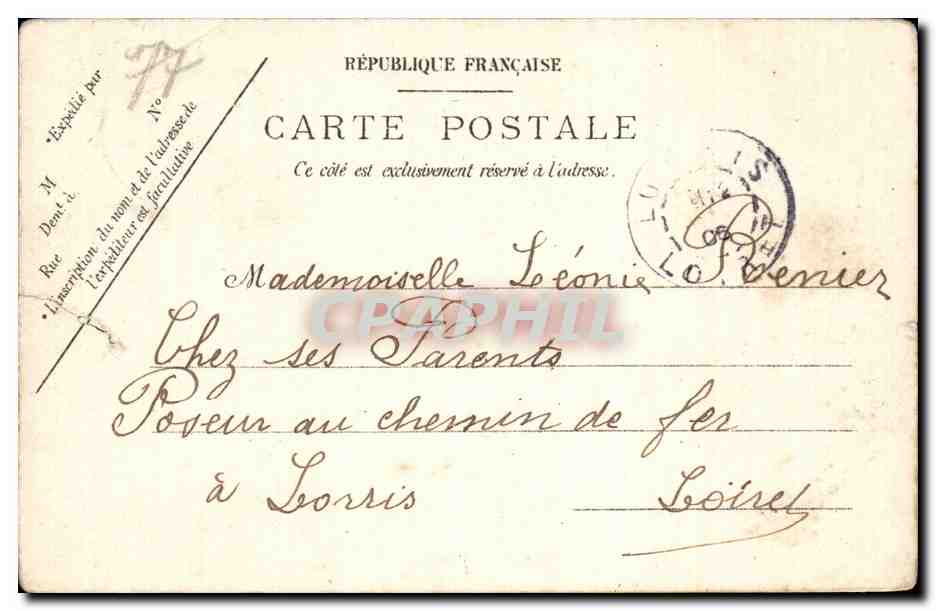 77
RÉPUBLIQUE FRANÇAISE
CARTE POSTALE
Ce côté est exclusivement réservé à l'adresse.
•Expédié par
M N°
Demt à
Rue
•L'inscription du nom et de l'adresse de
l'expéditeur est facultative
06
Mademoiselle Léonie
Chez ses Parents
Poseur au chemin de fer
à Lorris Loiret
CPAPHIL